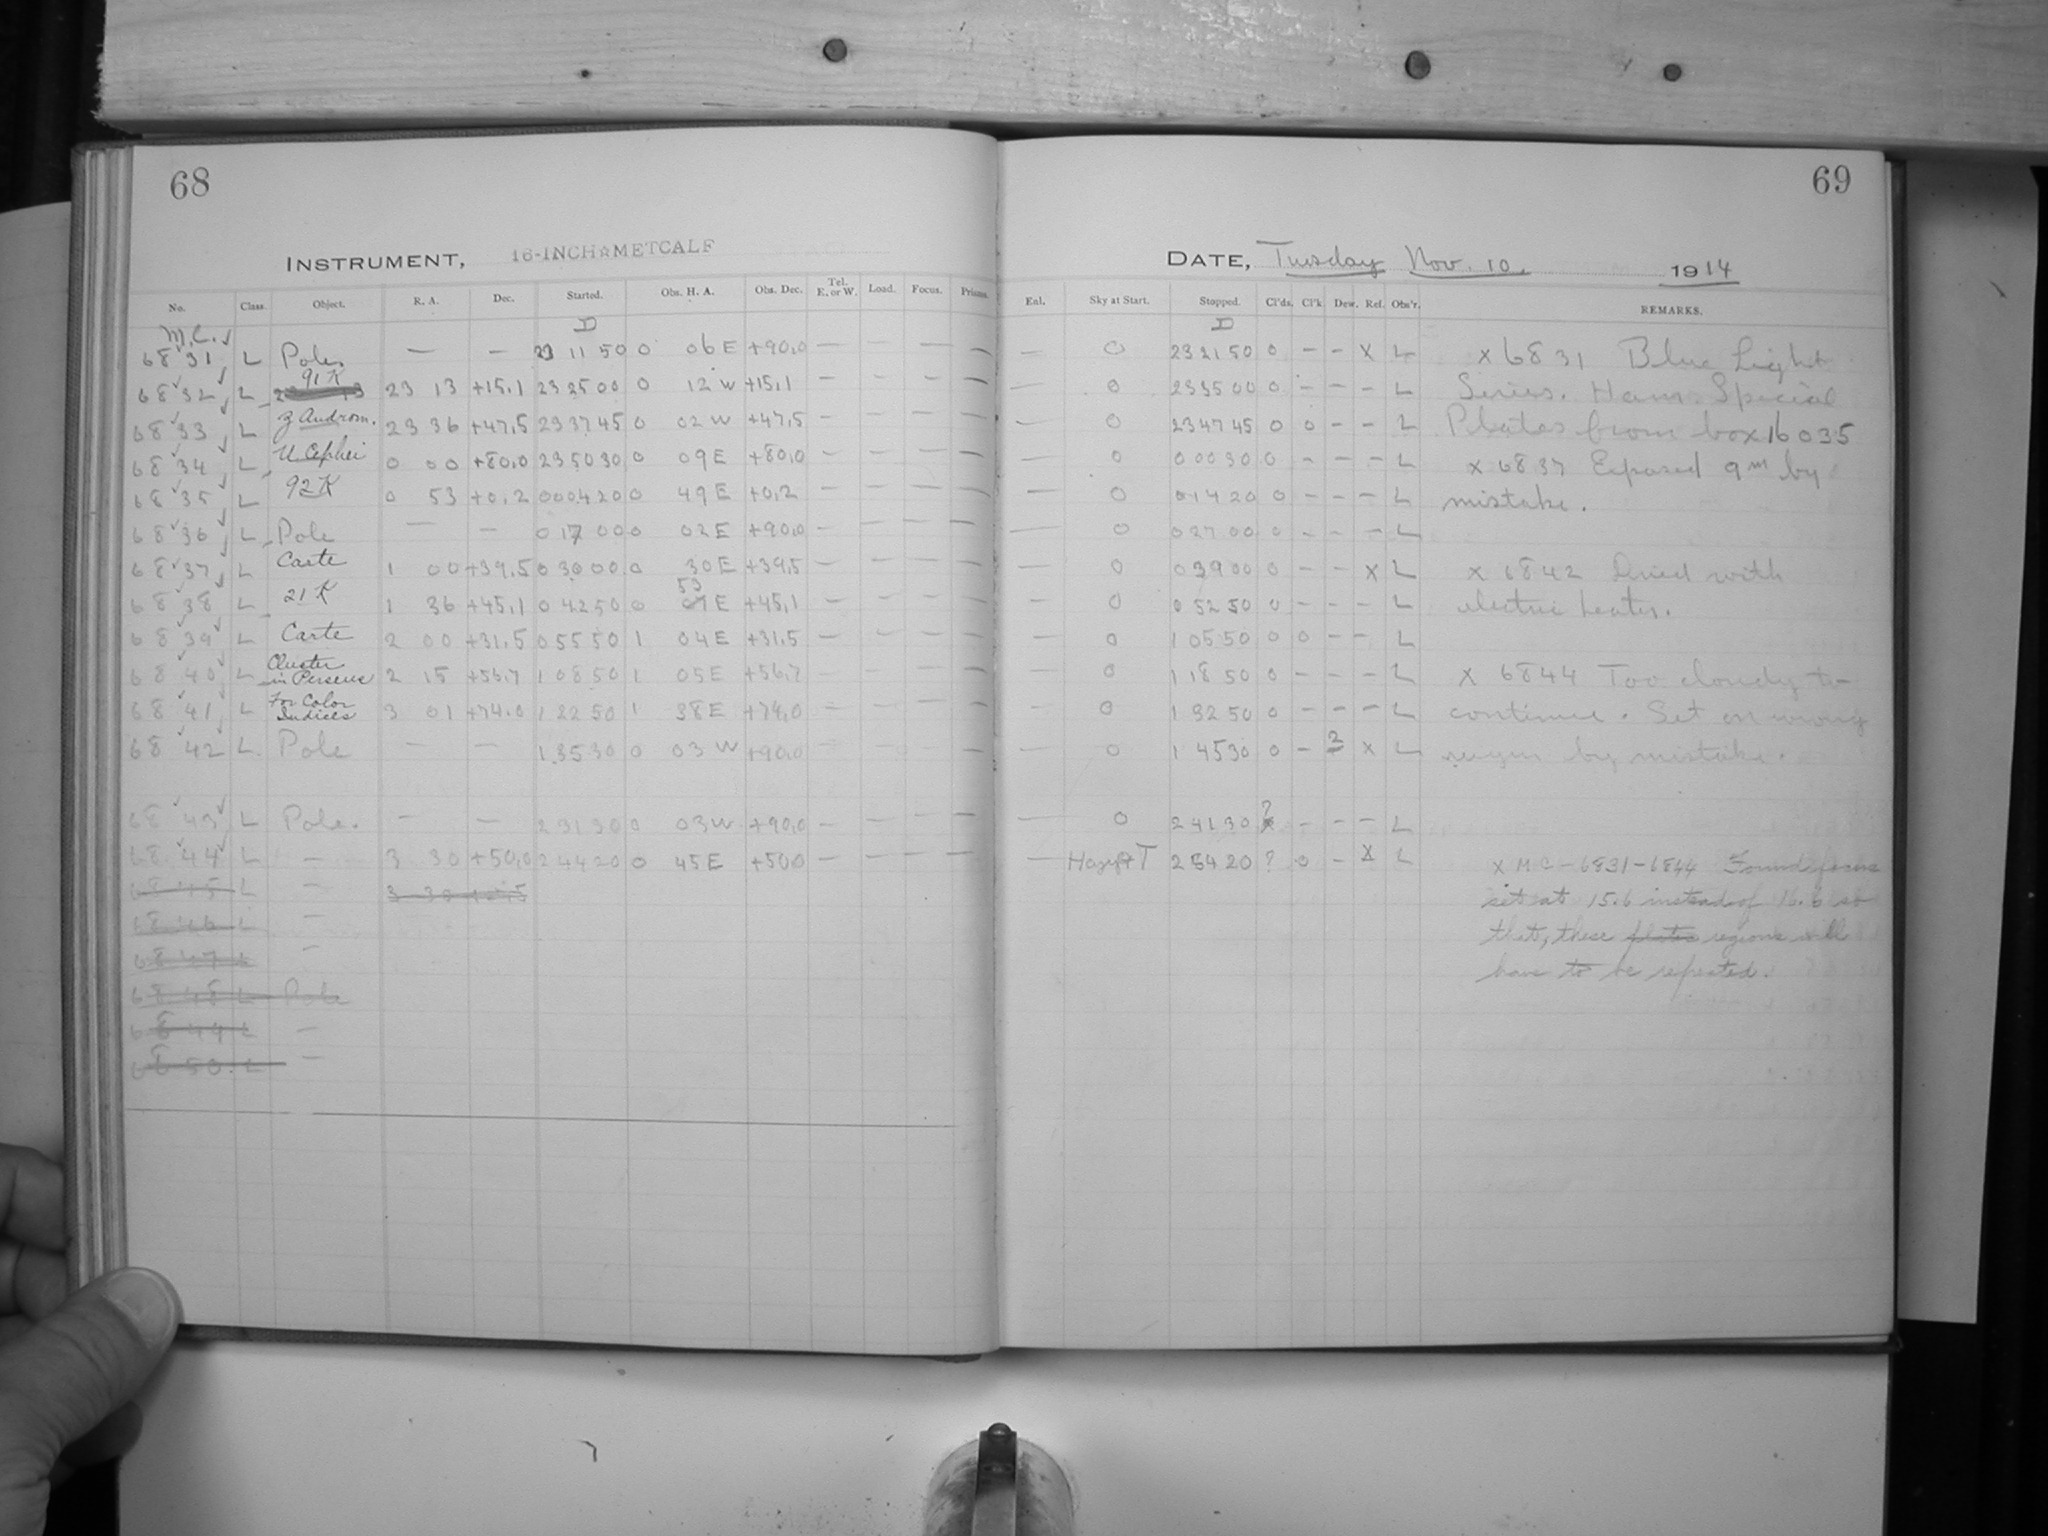 68
69
INSTRUMENT, 16-INCH☆METCALF
DATE, Tuesday Nov. 10, 1914
No. Class. Object. R. A. Dec. Started. Obs. H. A. Obs. Dec. Tel. E. or W. Load. Focus. Prisms.
Enl. Sky at Start. Stopped. Cl'ds. Cl'k Dew. Ref. Obs'r. REMARKS.
M.C. D D
6831 L Pole — — 23 11 50 0 06 E +90,0 — — — — — 0 23 21 50 0 — — x L x 6831 Blue Light
6832 L 91 K 23 13 +15,1 23 25 00 0 12 W +15,1 — — — — — 0 23 35 00 0 — — — L Series. Ham. Special
6833 L Z Androm. 23 36 +47,5 23 37 45 0 02 W +47,5 — — — — — 0 23 47 45 0 0 — — L Plates from box 16035
6834 L U Cephei 0 00 +80,0 23 50 30 0 09 E +80,0 — — — — — 0 0 00 30 0 — — — L x 6837 Exposed 9m by
6835 L 92 K 0 53 +0,2 0 04 20 0 49 E +0,2 — — — — — 0 0 14 20 0 — — — L mistake.
6836 L Pole — — 0 17 00 0 02 E +90,0 — — — — — 0 0 27 00 0 — — — L
6837 L Carte 1 00 +39,5 0 30 00 0 30 E +39,5 — — — — — 0 0 39 00 0 — — x L x 6842 Dried with
6838 L 21 K 1 36 +45,1 0 42 50 0 53 E +45,1 — — — — — 0 0 52 50 0 — — — L electric heater.
6839 L Carte 2 00 +31,5 0 55 50 1 04 E +31,5 — — — — — 0 1 05 50 0 0 — — L
6840 L Cluster in Perseus 2 15 +56,7 1 08 50 1 05 E +56,7 — — — — — 0 1 18 50 0 — — — L x 6844 Too cloudy to
6841 L For Color Indices 3 01 +74,0 1 22 50 1 38 E +74,0 — — — — — 0 1 32 50 0 — — — L continue. Set on wrong
6842 L Pole — — 1 35 30 0 03 W +90,0 — — — — — 0 1 45 30 0 — 2 x L region by mistake.
6843 L Pole. — — 2 31 30 0 03 W +90,0 — — — — — 0 2 41 30 ? — — — L
6844 L — 3 30 +50,0 2 44 20 0 45 E +50,0 — — — — — 2 54 20 ? 0 — x L x M C — 6831–6844 Found focus
6845 L — set at 15.6 instead of 16.6 so
6846 L — that, these plates regions will
6847 L — have to be repeated.
6848 L Pole
6849 L —
6850. L —